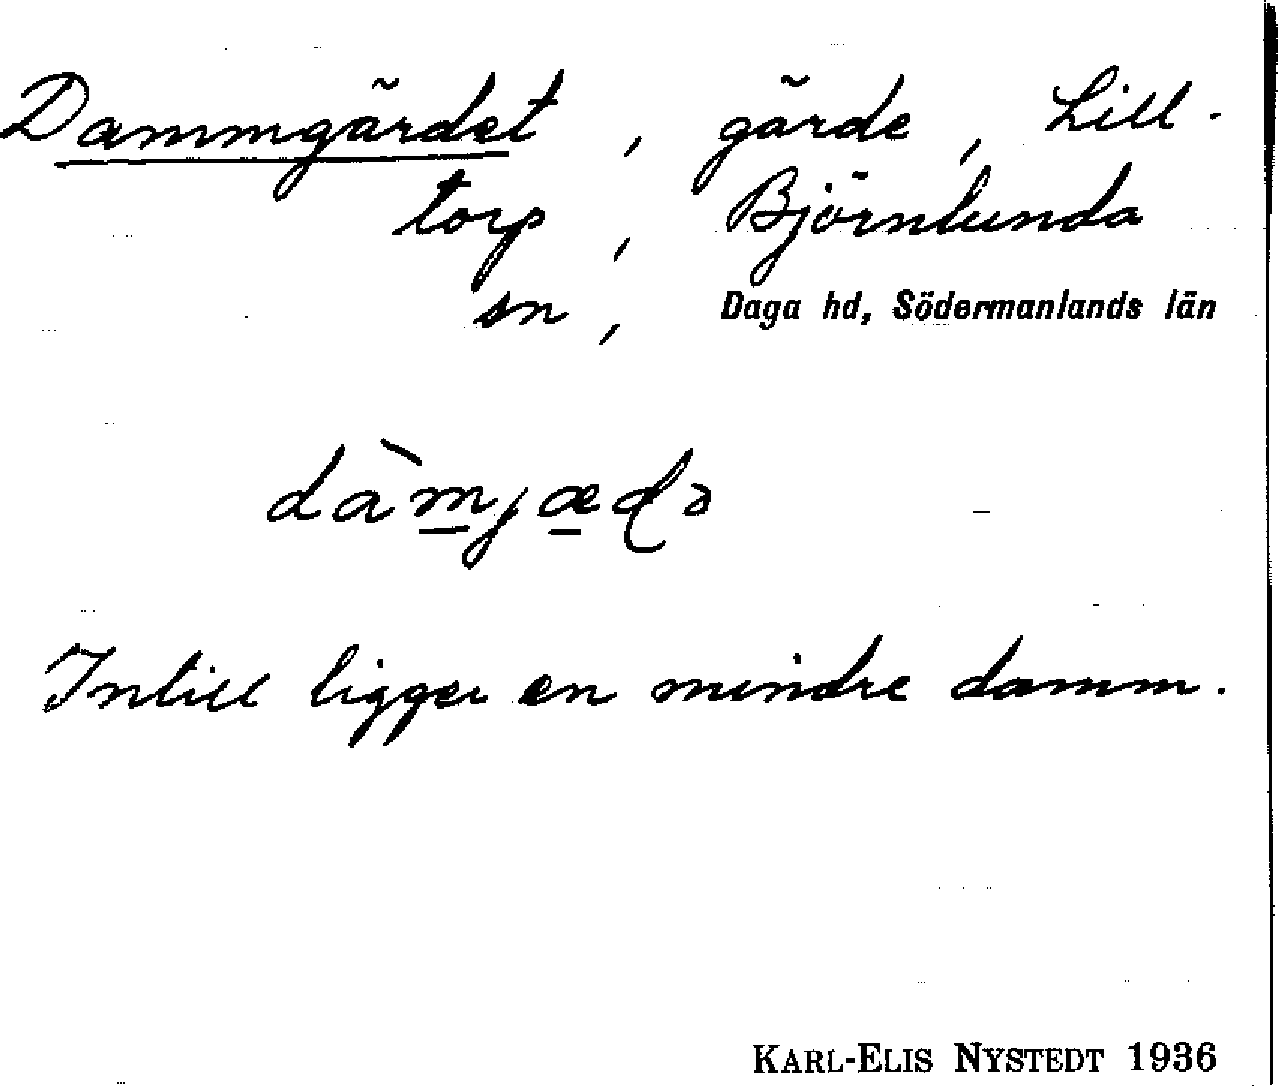 Dammgärdet, gärde, Lill-
torp, Björnlunda
sn, Daga hd, Södermanlands län
dàm̲jæ̲ɖə
Intill ligger en mindre damm.
KARL-ELIS NYSTEDT 1936